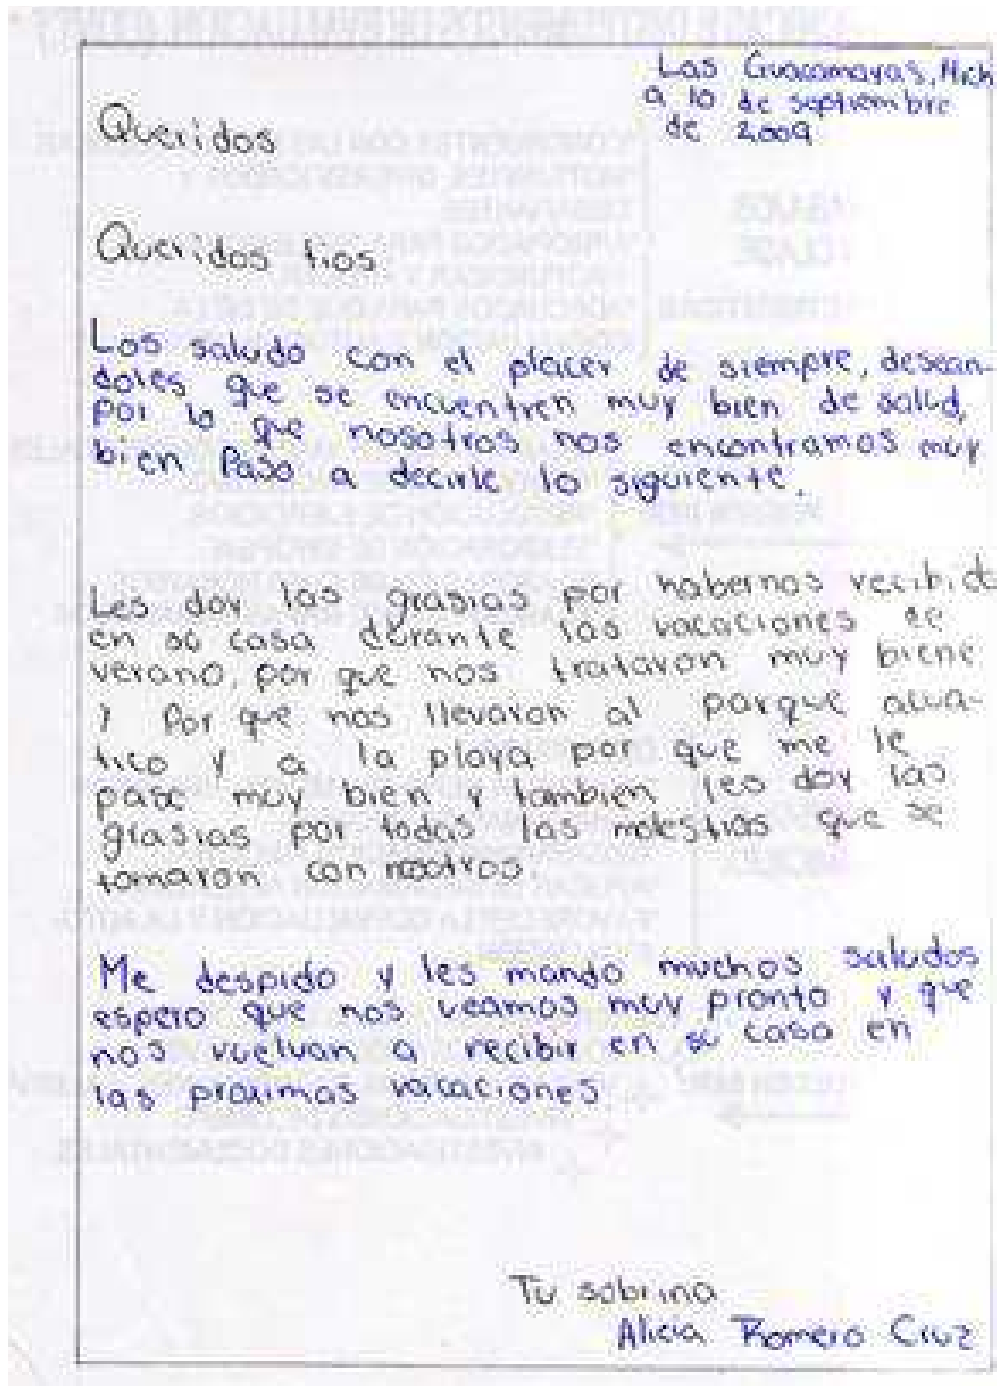 Las Guacamayas, Mich
a 10 de septiembre
de 2009
Queridos
Queridos tios
Los saludo con el placer de siempre, desean-
doles que se encuentren muy bien de salud,
por lo que nosotros nos encontramos muy
bien Paso a decirle lo siguiente.
Les doy las grasias por habernos recibido
en su casa durante las vacaciones de
verano, por que nos trataron muy biene
y Por que nos llevaron al parque acua-
tico y a la playa por que me le
pase muy bien y tambien les doy las
grasias por todas las molestias que se
tomaron con nosotros.
Me despido y les mando muchos saludos
espero que nos veamos muy pronto y que
nos vuelvan a recibir en su casa en
las proximas vacaciones
Tu sobrina
Alicia Romero Cruz